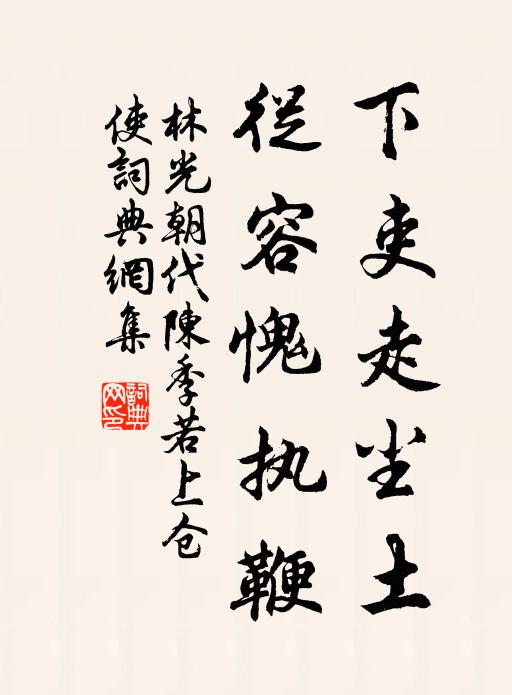 下吏走尘土
從容愧执鞭
林光朝代陳季若上仓
使詞典網集
詞典
网印